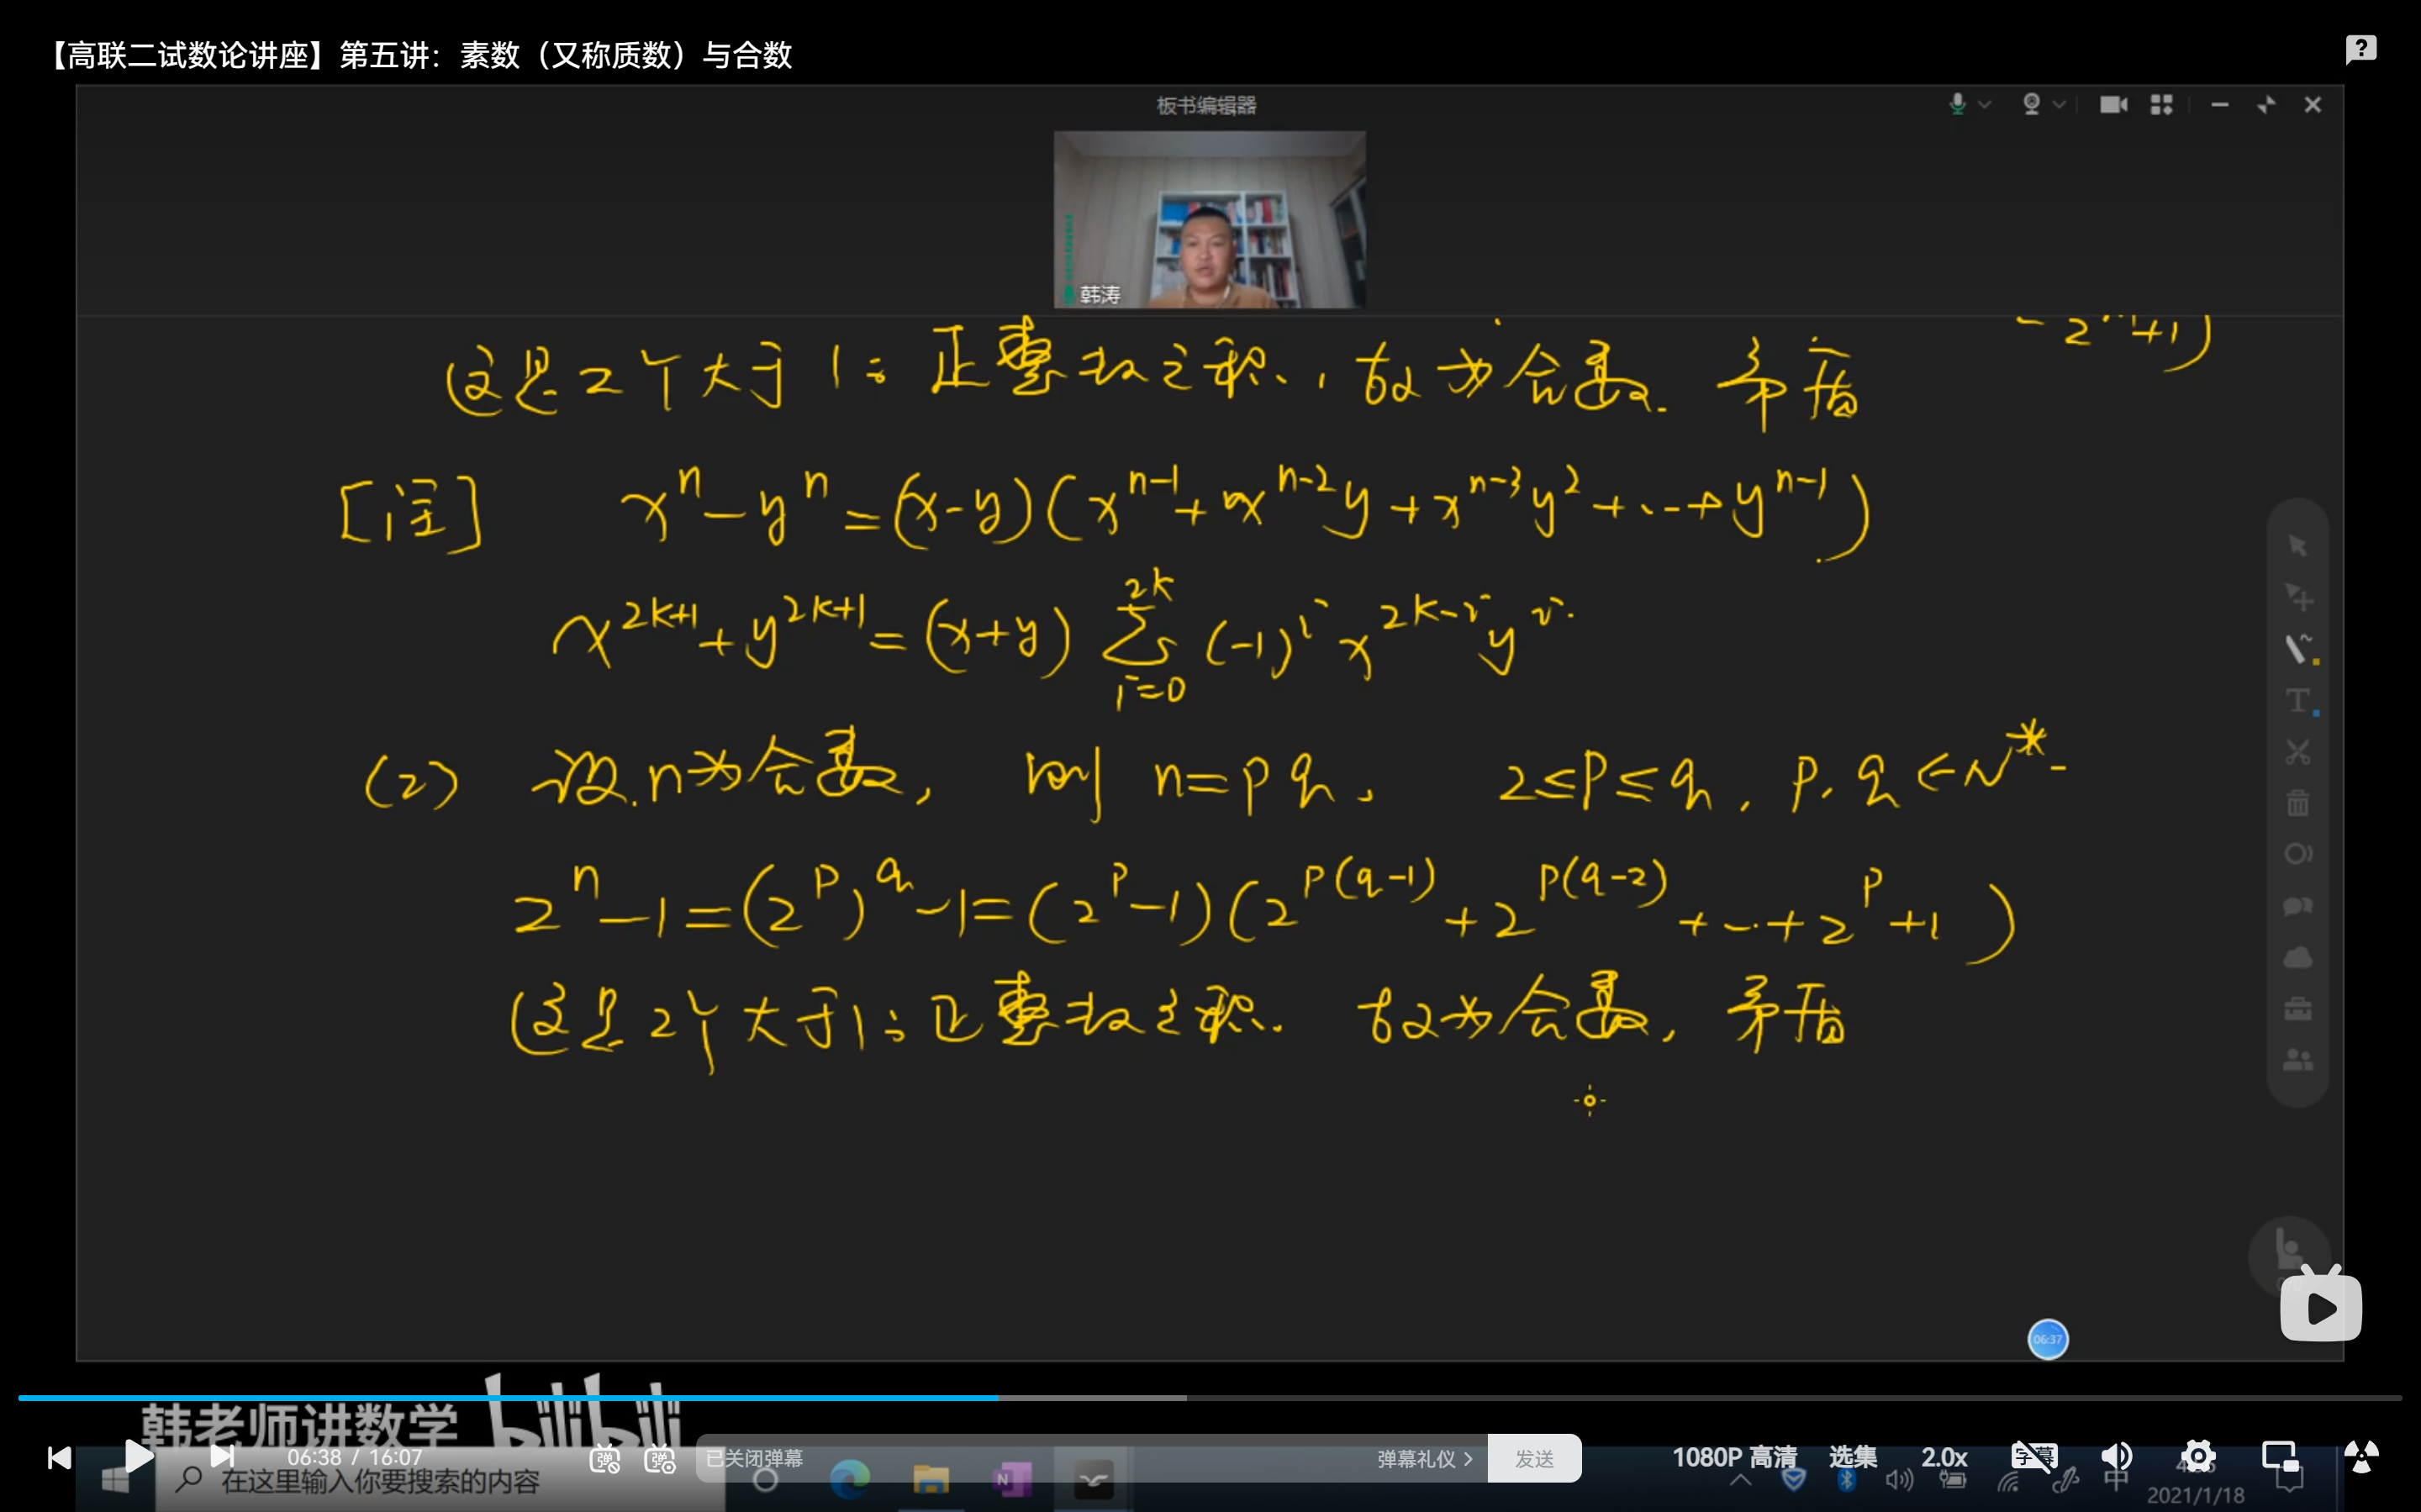 【高联二试数论讲座】第五讲：素数（又称质数）与合数
板书编辑器
韩涛
2^m+1)
这是2个大于1的正整数之积，故为合数. 矛盾
[注] x^n-y^n=(x-y)(x^{n-1}+x^{n-2}y+x^{n-3}y^2+…+y^{n-1})
x^{2k+1}+y^{2k+1}=(x+y)∑_{i=0}^{2k}(-1)^i x^{2k-i}y^i.
(2) 设n为合数, 则 n=pq, 2≤p≤q, p,q∈N*
2^n-1=(2^p)^q-1=(2^p-1)(2^{p(q-1)}+2^{p(q-2)}+…+2^p+1)
这是2个大于1的正整数之积. 故为合数, 矛盾
06:37
韩老师讲数学 bilibili
06:38 / 16:07
弹
弹
已关闭弹幕
弹幕礼仪 >
发送
1080P 高清
选集
2.0x
字幕
在这里输入你要搜索的内容
中
2021/1/18